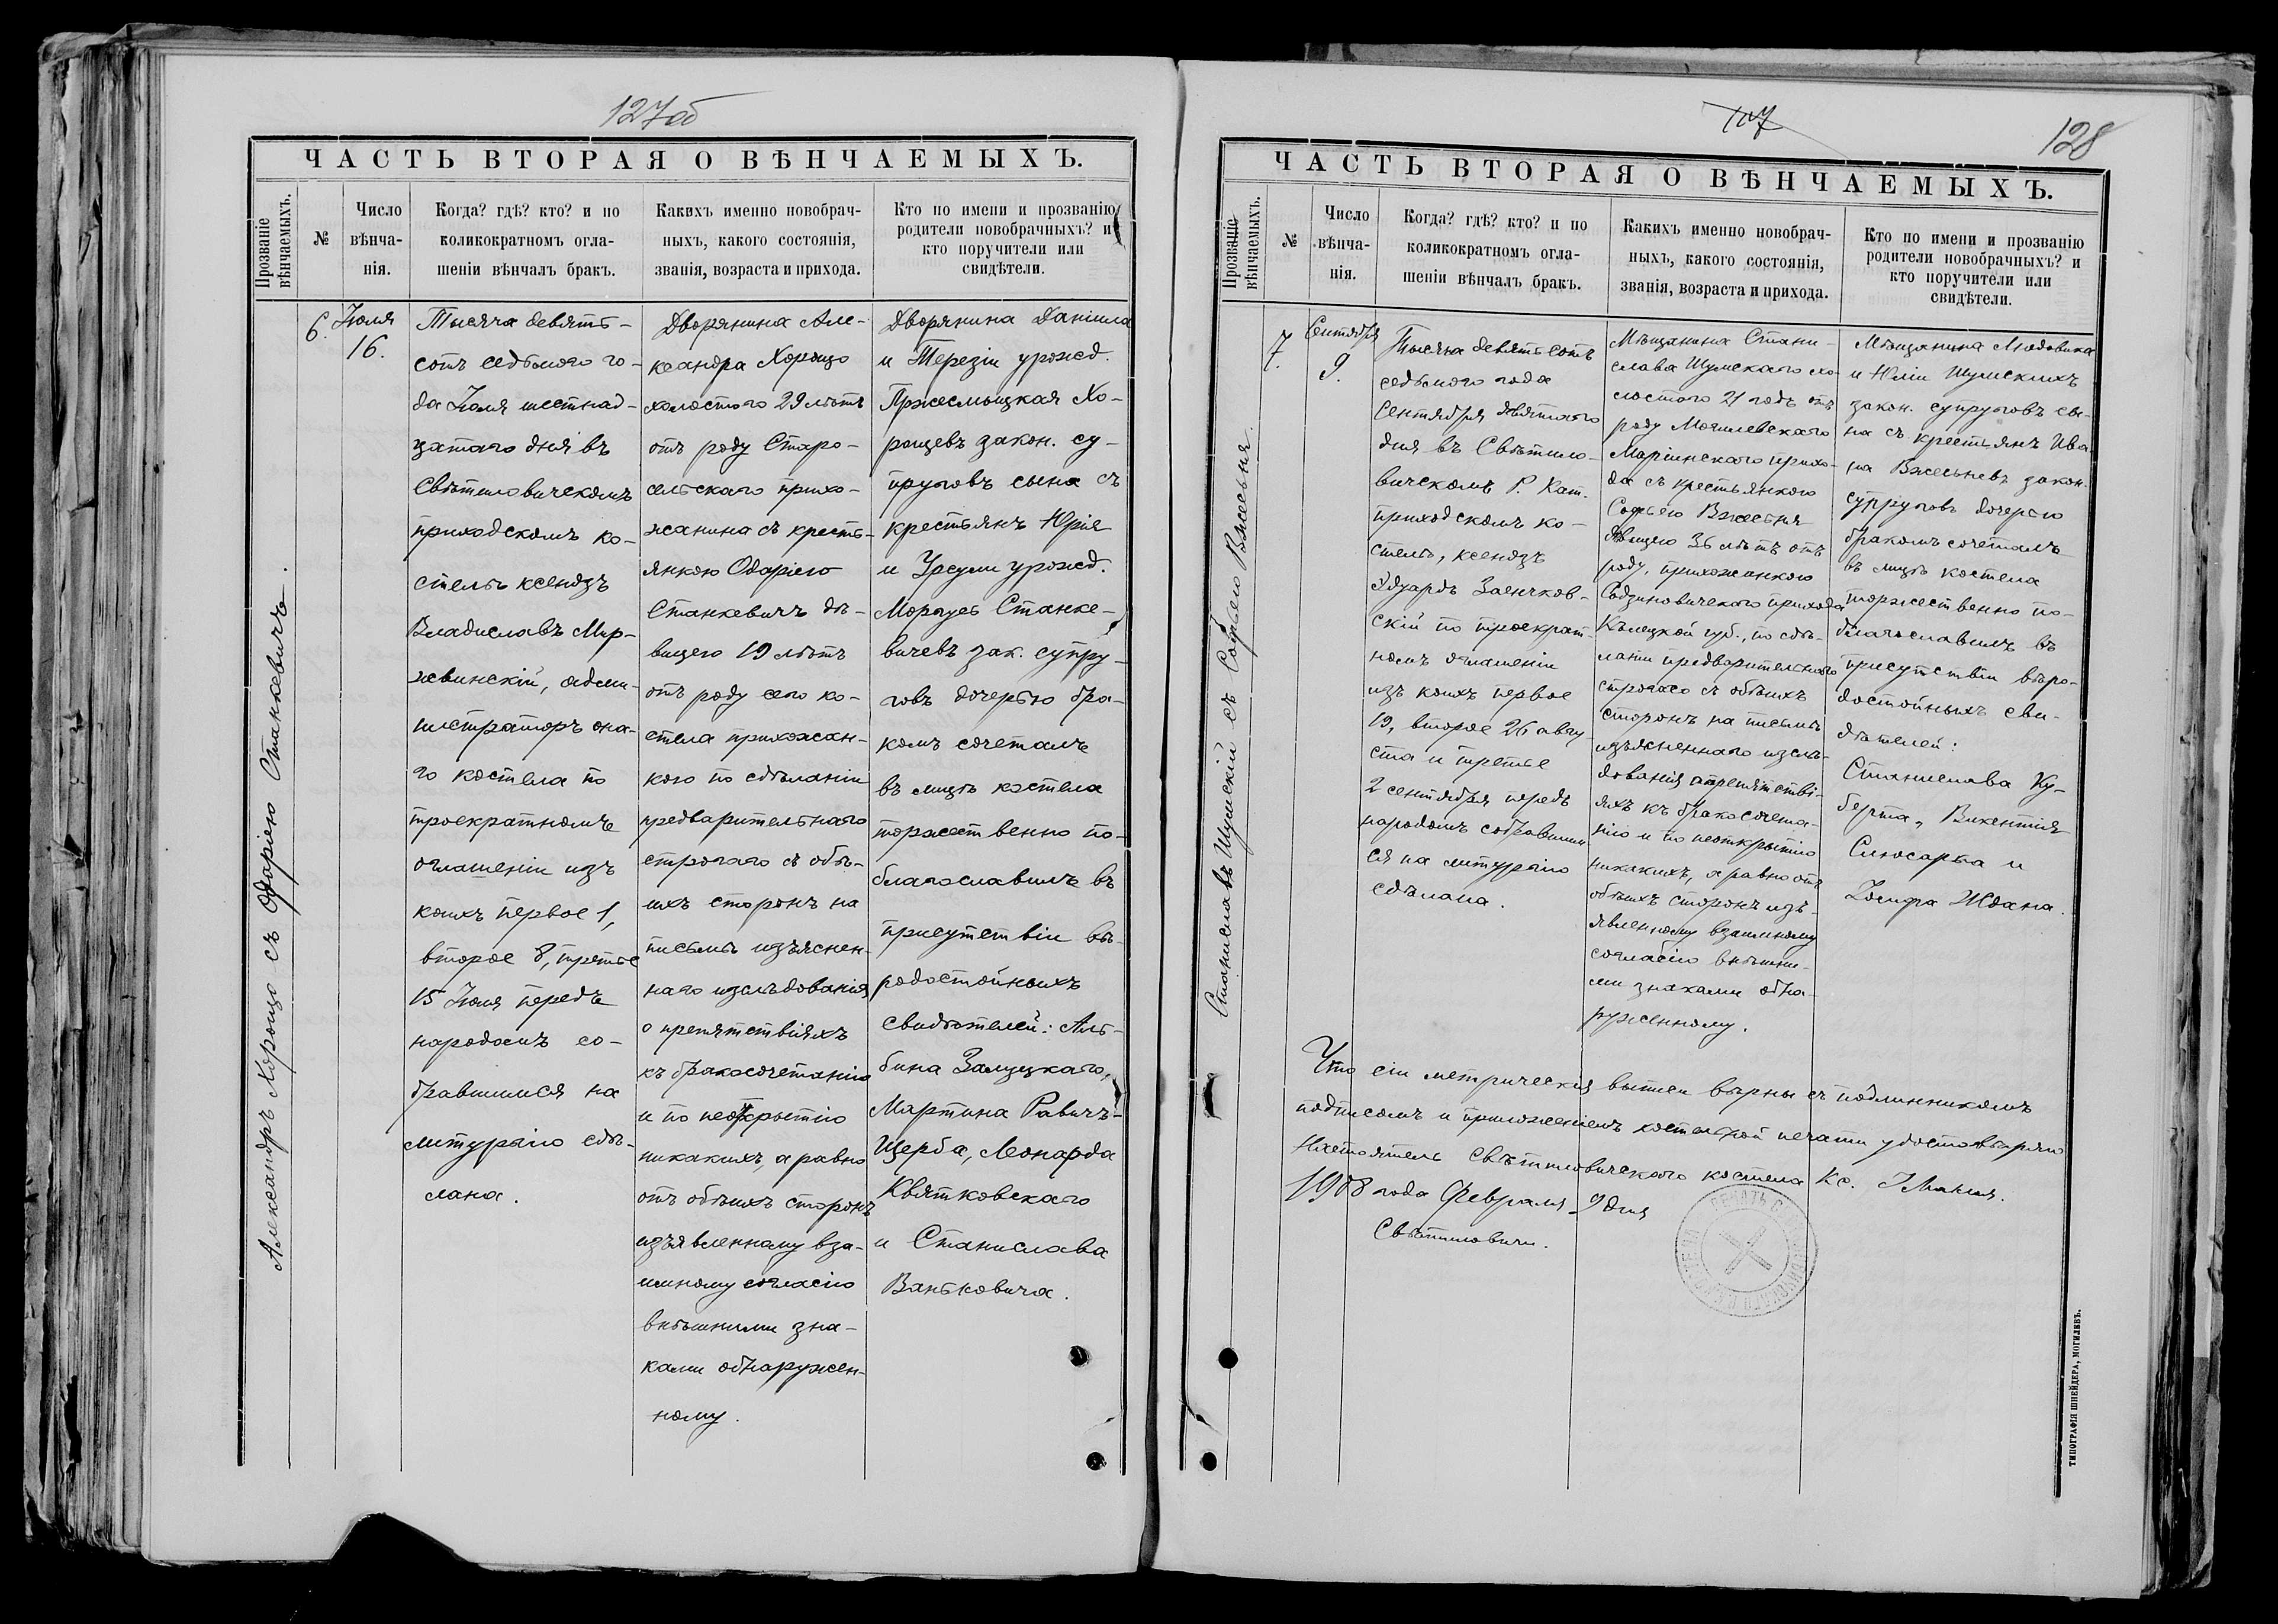 127об
ЧАСТЬ ВТОРАЯ О ВѢНЧАЕМЫХЪ.
Прозваніе
вѣнчаемыхъ.
№
Число
вѣнча-
нія.
Когда? гдѣ? кто? и по
коликократномъ огла-
шеніи вѣнчалъ бракъ.
Какихъ именно новобрач-
ныхъ, какого состоянія,
званія, возраста и прихода.
Кто по имени и прозванію
родители новобрачныхъ? и
кто поручители или
свидѣтели.
Александръ Хорощо съ Одаріею Станкевичъ.
6.
Іюля
16.
Тысяча девять-
сотъ седьмого го-
да Іюля шестнад-
цатаго дня въ
Свѣтиловичскомъ
приходскомъ ко-
стелѣ ксендзъ
Владиславъ Мир-
жвинскій, адми-
нистраторъ она-
го костела по
троекратномъ
оглашеніи изъ
коихъ первое 1,
второе 8, третье
15 Іюля передъ
народомъ со-
бравшимся на
литургію сдѣ-
лана.
Дворянина Але-
ксандра Хорощо
холостого 29 лѣтъ
отъ роду Старо-
сельскаго прихо-
жанина съ кресть-
янкою Одаріею
Станкевичъ дѣ-
вицею 19 лѣтъ
отъ роду сего ко-
стела прихожан-
кою по сдѣланіи
предварительнаго
строгаго съ обѣ-
ихъ сторонъ на
письмѣ изъяснен-
наго изслѣдованія
о препятствіяхъ
къ бракосочетанію
и по неоткрытію
никакихъ, а равно
отъ обѣихъ сторонъ
изъявленному вза-
имному согласію
внѣшними зна-
ками обнаружен-
ному.
Дворянина Даніила
и Терезіи урожд.
Пржесмыцкая Хо-
рощевъ закон. су-
пруговъ сына съ
крестьянъ Юрія
и Урсули урожд.
Морозъ Станке-
вичевъ зак. супру-
говъ дочерью бра-
комъ сочеталъ
въ лицѣ костела
торжественно по-
благословилъ въ
присутствіи вѣ-
родостойныхъ
свидѣтелей: Аль-
бина Залуцкаго,
Мартина Равичъ-
Щерба, Леонарда
Квятковскаго
и Станислава
Ваньковича.
128
ЧАСТЬ ВТОРАЯ О ВѢНЧАЕМЫХЪ.
Прозваніе
вѣнчаемыхъ.
№
Число
вѣнча-
нія.
Когда? гдѣ? кто? и по
коликократномъ огла-
шеніи вѣнчалъ бракъ.
Какихъ именно новобрач-
ныхъ, какого состоянія,
званія, возраста и прихода.
Кто по имени и прозванію
родители новобрачныхъ? и
кто поручители или
свидѣтели.
Станиславъ Шумскій съ Софіею Вжесьня.
7.
Сентября
9.
Тысяча девятьсотъ
седьмого года
Сентября девятаго
дня въ Свѣтило-
вичскомъ Р. Кат.
приходскомъ ко-
стелѣ, ксендзъ
Эдуардъ Заенчков-
скій по троекрат-
номъ оглашеніи
изъ коихъ первое
19, второе 26 авгу
ста и третье
2 сентября передъ
народомъ собравшим
ся на литургію
сдѣлана.
Мѣщанина Стани-
слава Шумскаго хо-
лостого 21 годъ отъ
роду Могилевскаго
Маріинскаго прихо-
да съ крестьянкою
Софьею Вжесьня
дѣвицею 36 лѣтъ отъ
роду, прихожанкою
Содзиновичскаго прихода
Кѣлецкой губ., по сдѣ-
ланіи предварительнаго
строгаго съ обѣихъ
сторонъ на письмѣ
изъясненнаго изслѣ-
дованія о препятстві-
яхъ къ бракосочета-
нію и по неоткрытію
никакихъ, а равно отъ
обѣихъ сторонъ изъ-
явленному взаимному
согласію внѣшни-
ми знаками обна-
руженному.
Мѣщанина Людовика
и Юліи Шумскихъ
закон. супруговъ сы-
на съ крестьянъ Ива
на Вжесьневъ закон.
супруговъ дочерью
бракомъ сочеталъ
въ лицѣ костела
торжественно по-
благословилъ въ
присутствіи вѣро-
достойныхъ сви-
дѣтелей:
Станислава Ку-
берта, Викентія
Слюсарка и
Іосифа Ждана.
Что сіи метрическія выписи вѣрны съ подлинникомъ
подписомъ и приложеніемъ костельной печати удостовѣряю
Настоятель Свѣтиловичскаго костела Кс.
1908 года Февраля 9 дня
Свѣтиловичи.
ТИПОГРАФІЯ ШНЕЙДЕРА, МОГИЛЕВЪ.